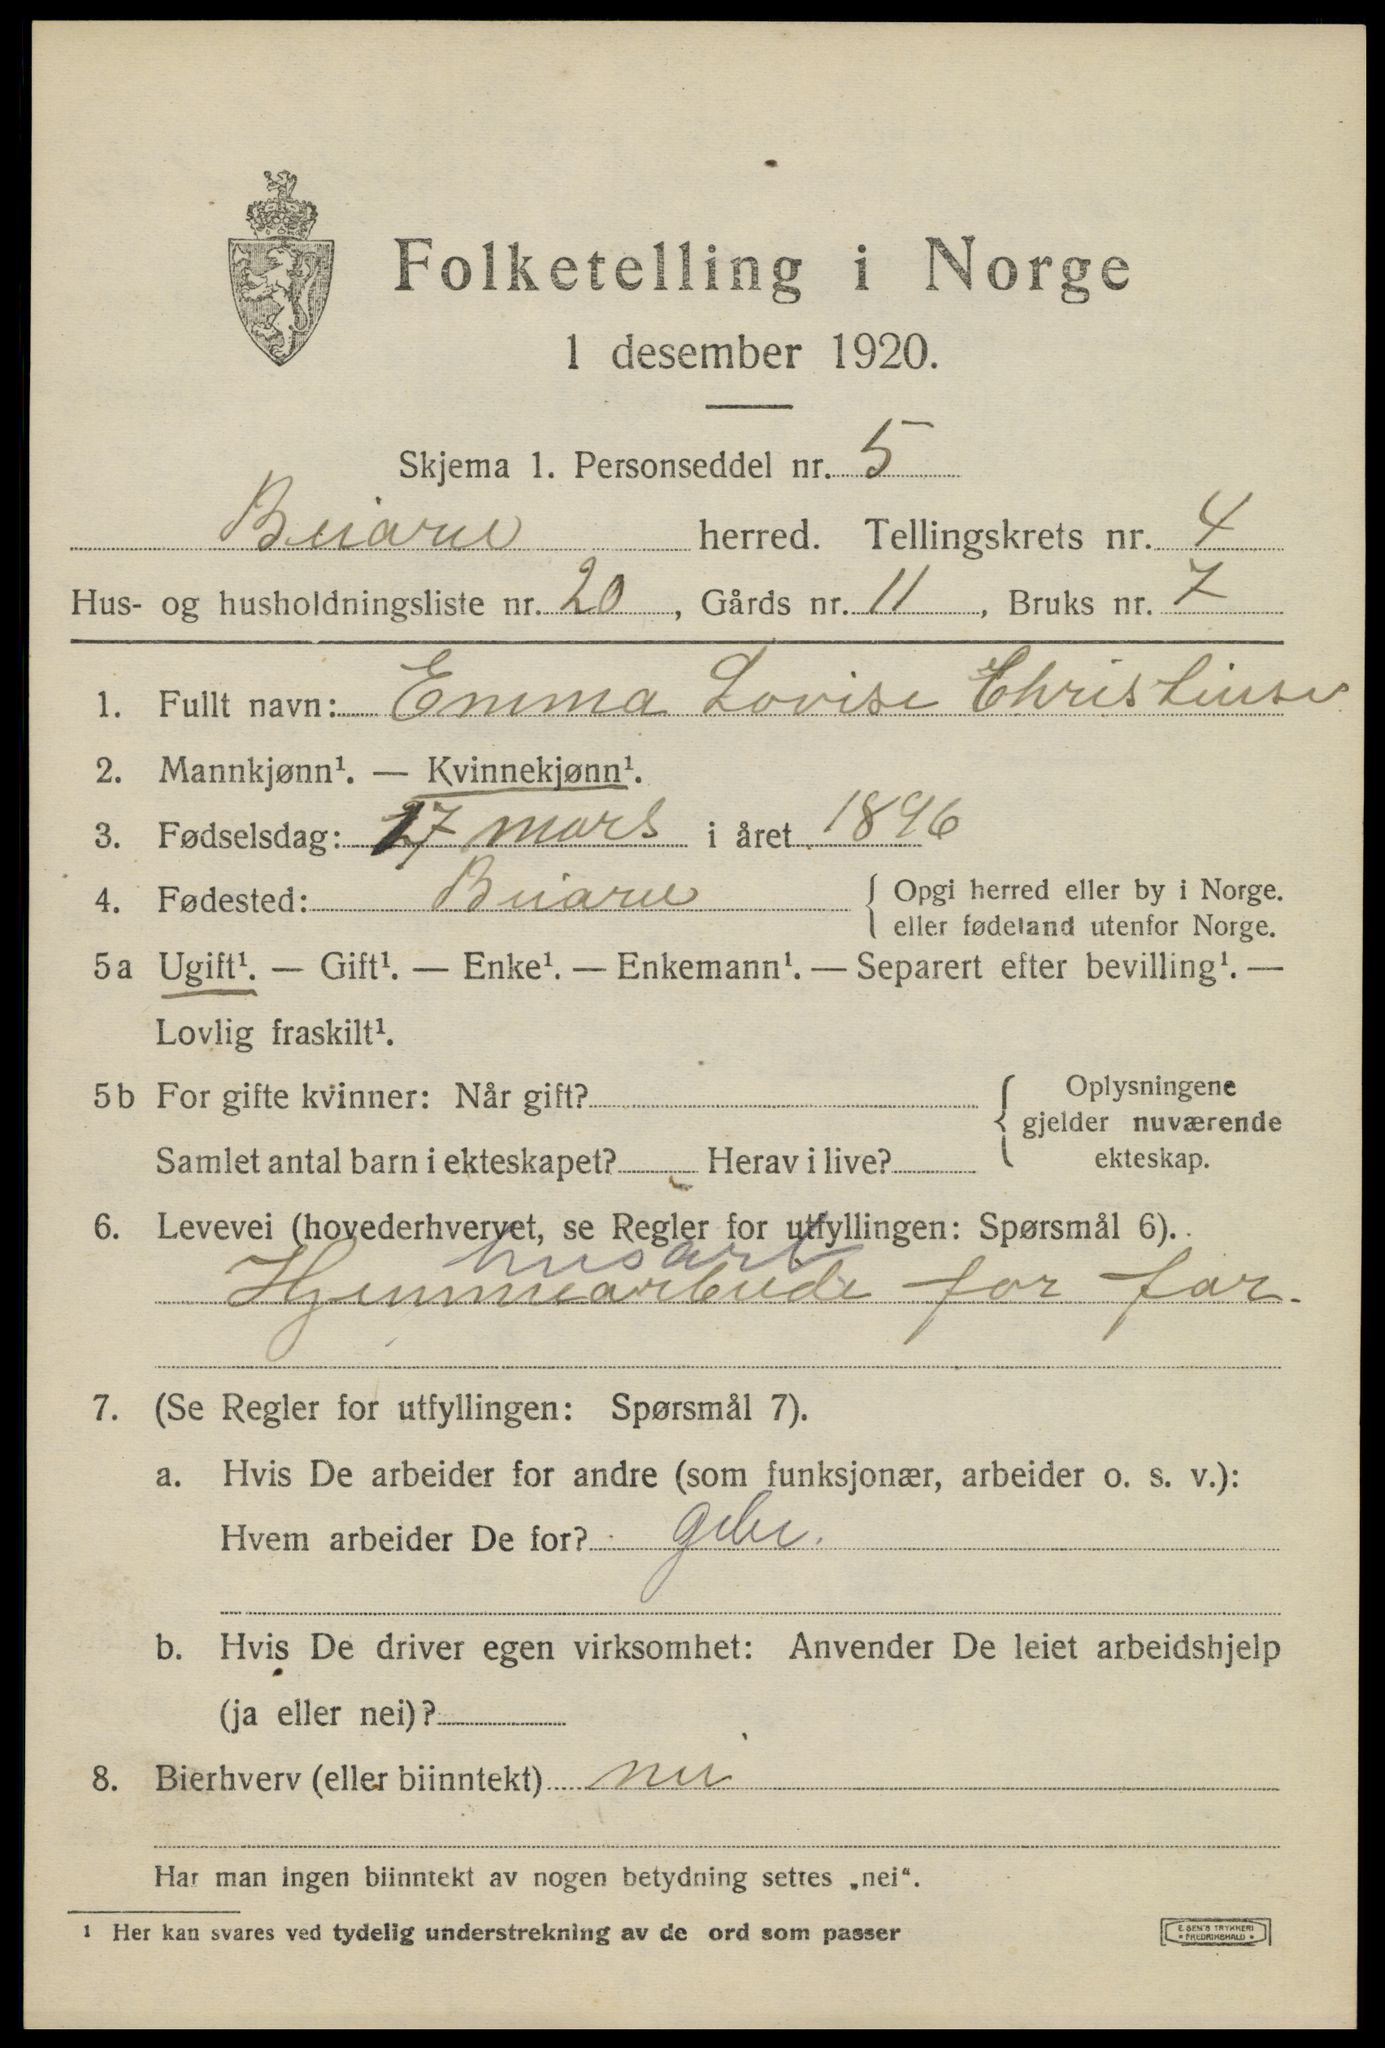 Folketelling i Norge
1 desember 1920.
Skjema 1. Personseddel nr. 5
Beiarn herred. Tellingskrets nr. 4
Hus- og husholdningsliste nr. 20, Gårds nr. 11, Bruks nr. 7
1. Fullt navn: Emma Lovise Christensen
2. Mannkjønn¹. — Kvinnekjønn¹.
3. Fødselsdag: 17 mars i året 1896
4. Fødested: Beiarn { Opgi herred eller by i Norge.
eller fødeland utenfor Norge.
5a Ugift¹. — Gift¹. — Enke¹. — Enkemann¹. — Separert efter bevilling¹. —
Lovlig fraskilt¹.
5b For gifte kvinner: Når gift? { Oplysningene
gjelder nuværende
Samlet antal barn i ekteskapet? Herav i live? ekteskap.
6. Levevei (hovederhvervet, se Regler for utfyllingen: Spørsmål 6).
husarb
Hjemmearbeide for far.
7. (Se Regler for utfyllingen: Spørsmål 7).
a. Hvis De arbeider for andre (som funksjonær, arbeider o. s. v.):
Hvem arbeider De for?
b. Hvis De driver egen virksomhet: Anvender De leiet arbeidshjelp
(ja eller nei)?
8. Bierhverv (eller biinntekt) nei
Har man ingen biinntekt av nogen betydning settes „nei“.
¹ Her kan svares ved tydelig understrekning av de ord som passer
E. SEN'S TRYKKERI
• FREDRIKSHALD •